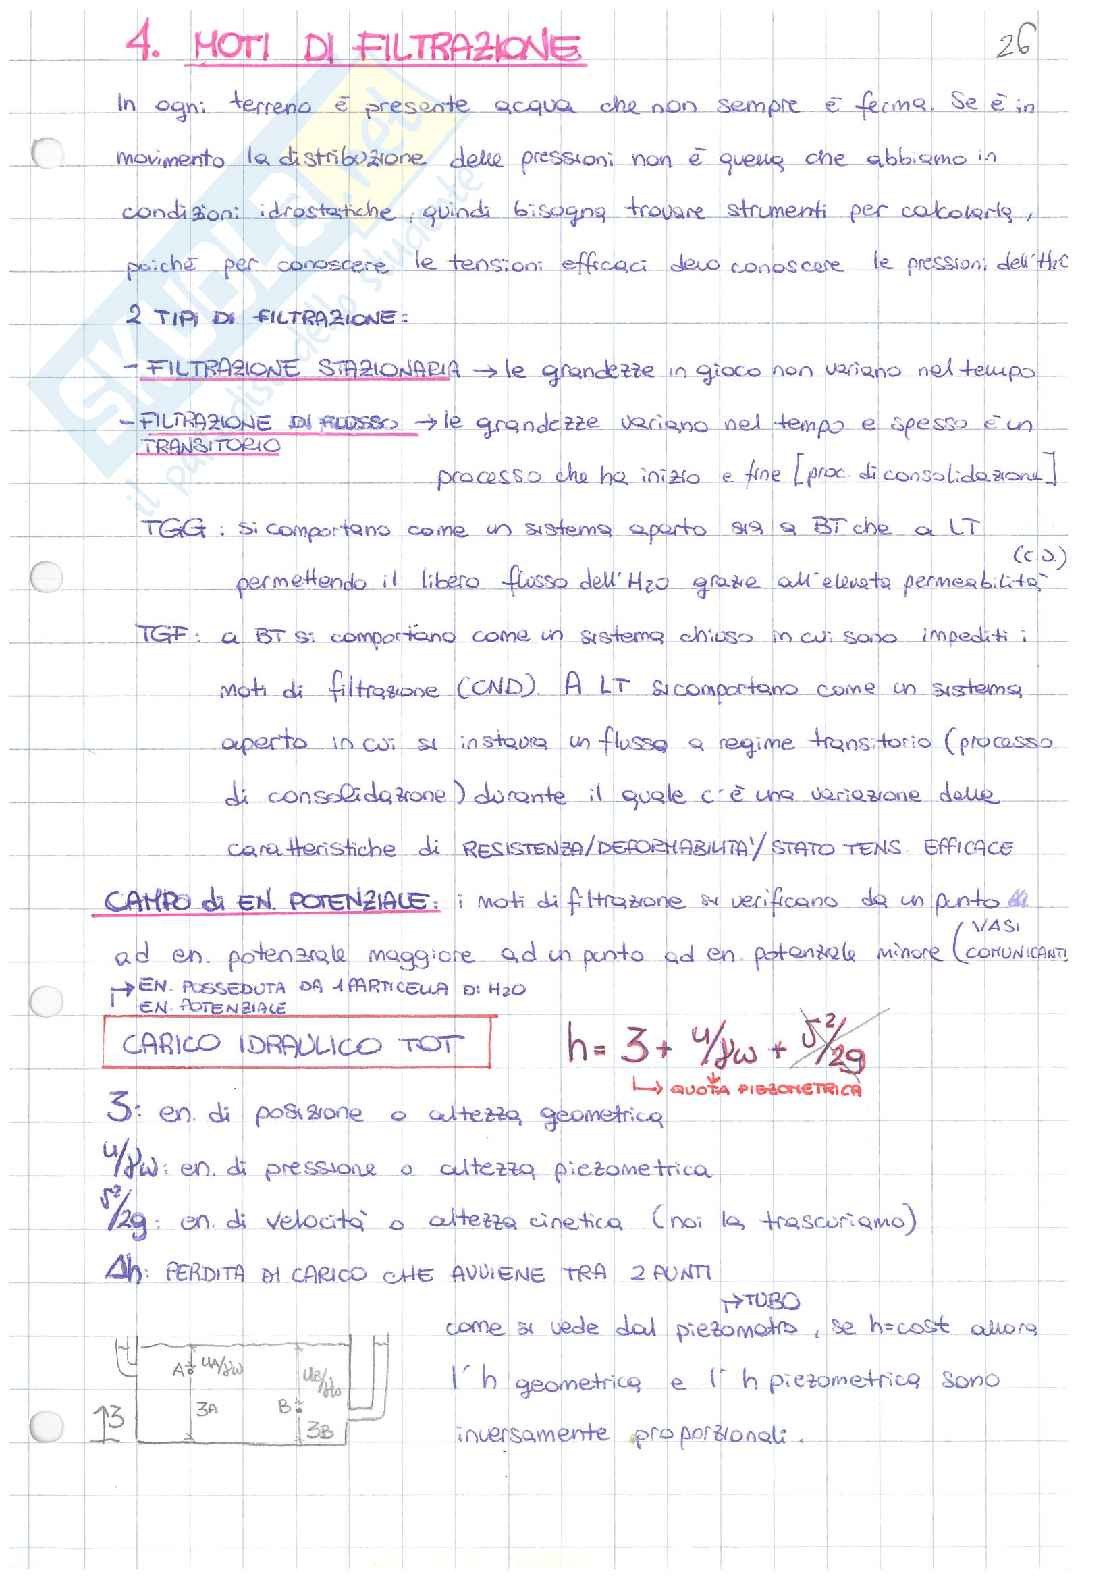 4. MOTI DI FILTRAZIONE
26
In ogni terreno è presente acqua che non sempre è ferma. Se è in
movimento la distribuzione delle pressioni non è quella che abbiamo in
condizioni idrostatiche, quindi bisogna trovare strumenti per calcolarla,
poiché per conoscere le tensioni efficaci devo conoscere le pressioni dell'H2O
2 TIPI DI FILTRAZIONE:
- FILTRAZIONE STAZIONARIA → le grandezze in gioco non variano nel tempo
- FILTRAZIONE DI FLUSSO → le grandezze variano nel tempo e spesso è un
TRANSITORIO
processo che ha inizio e fine [proc. di consolidazione]
TGG: si comportano come un sistema aperto sia a BT che a LT
(CD)
permettendo il libero flusso dell'H2O grazie all'elevata permeabilità
TGF: a BT si comportano come un sistema chiuso in cui sono impediti i
moti di filtrazione (CND). A LT si comportano come un sistema
aperto in cui si instaura un flusso a regime transitorio (processo
di consolidazione) durante il quale c'è una variazione delle
caratteristiche di RESISTENZA/DEFORMABILITA'/STATO TENS. EFFICACE
CAMPO di EN. POTENZIALE: i moti di filtrazione si verificano da un punto
ad en. potenziale maggiore ad un punto ad en. potenziale minore (VASI
COMUNICANTI
→ EN. POSSEDUTA DA 1 PARTICELLA DI H2O
EN. POTENZIALE
CARICO IDRAULICO TOT
h = z + u/γw + v²/2g
→ QUOTA PIEZOMETRICA
z: en. di posizione o altezza geometrica
u/γw: en. di pressione o altezza piezometrica
v²/2g: en. di velocità o altezza cinetica (noi la trascuriamo)
Δh: PERDITA DI CARICO CHE AVVIENE TRA 2 PUNTI
→ TUBO
come si vede dal piezometro, se h=cost allora
l'h geometrica e l'h piezometrica sono
inversamente proporzionali.
A uA/γw
uB/γw
zA
B
zB
↑z
SKUOLA.net
il paradiso dello studente